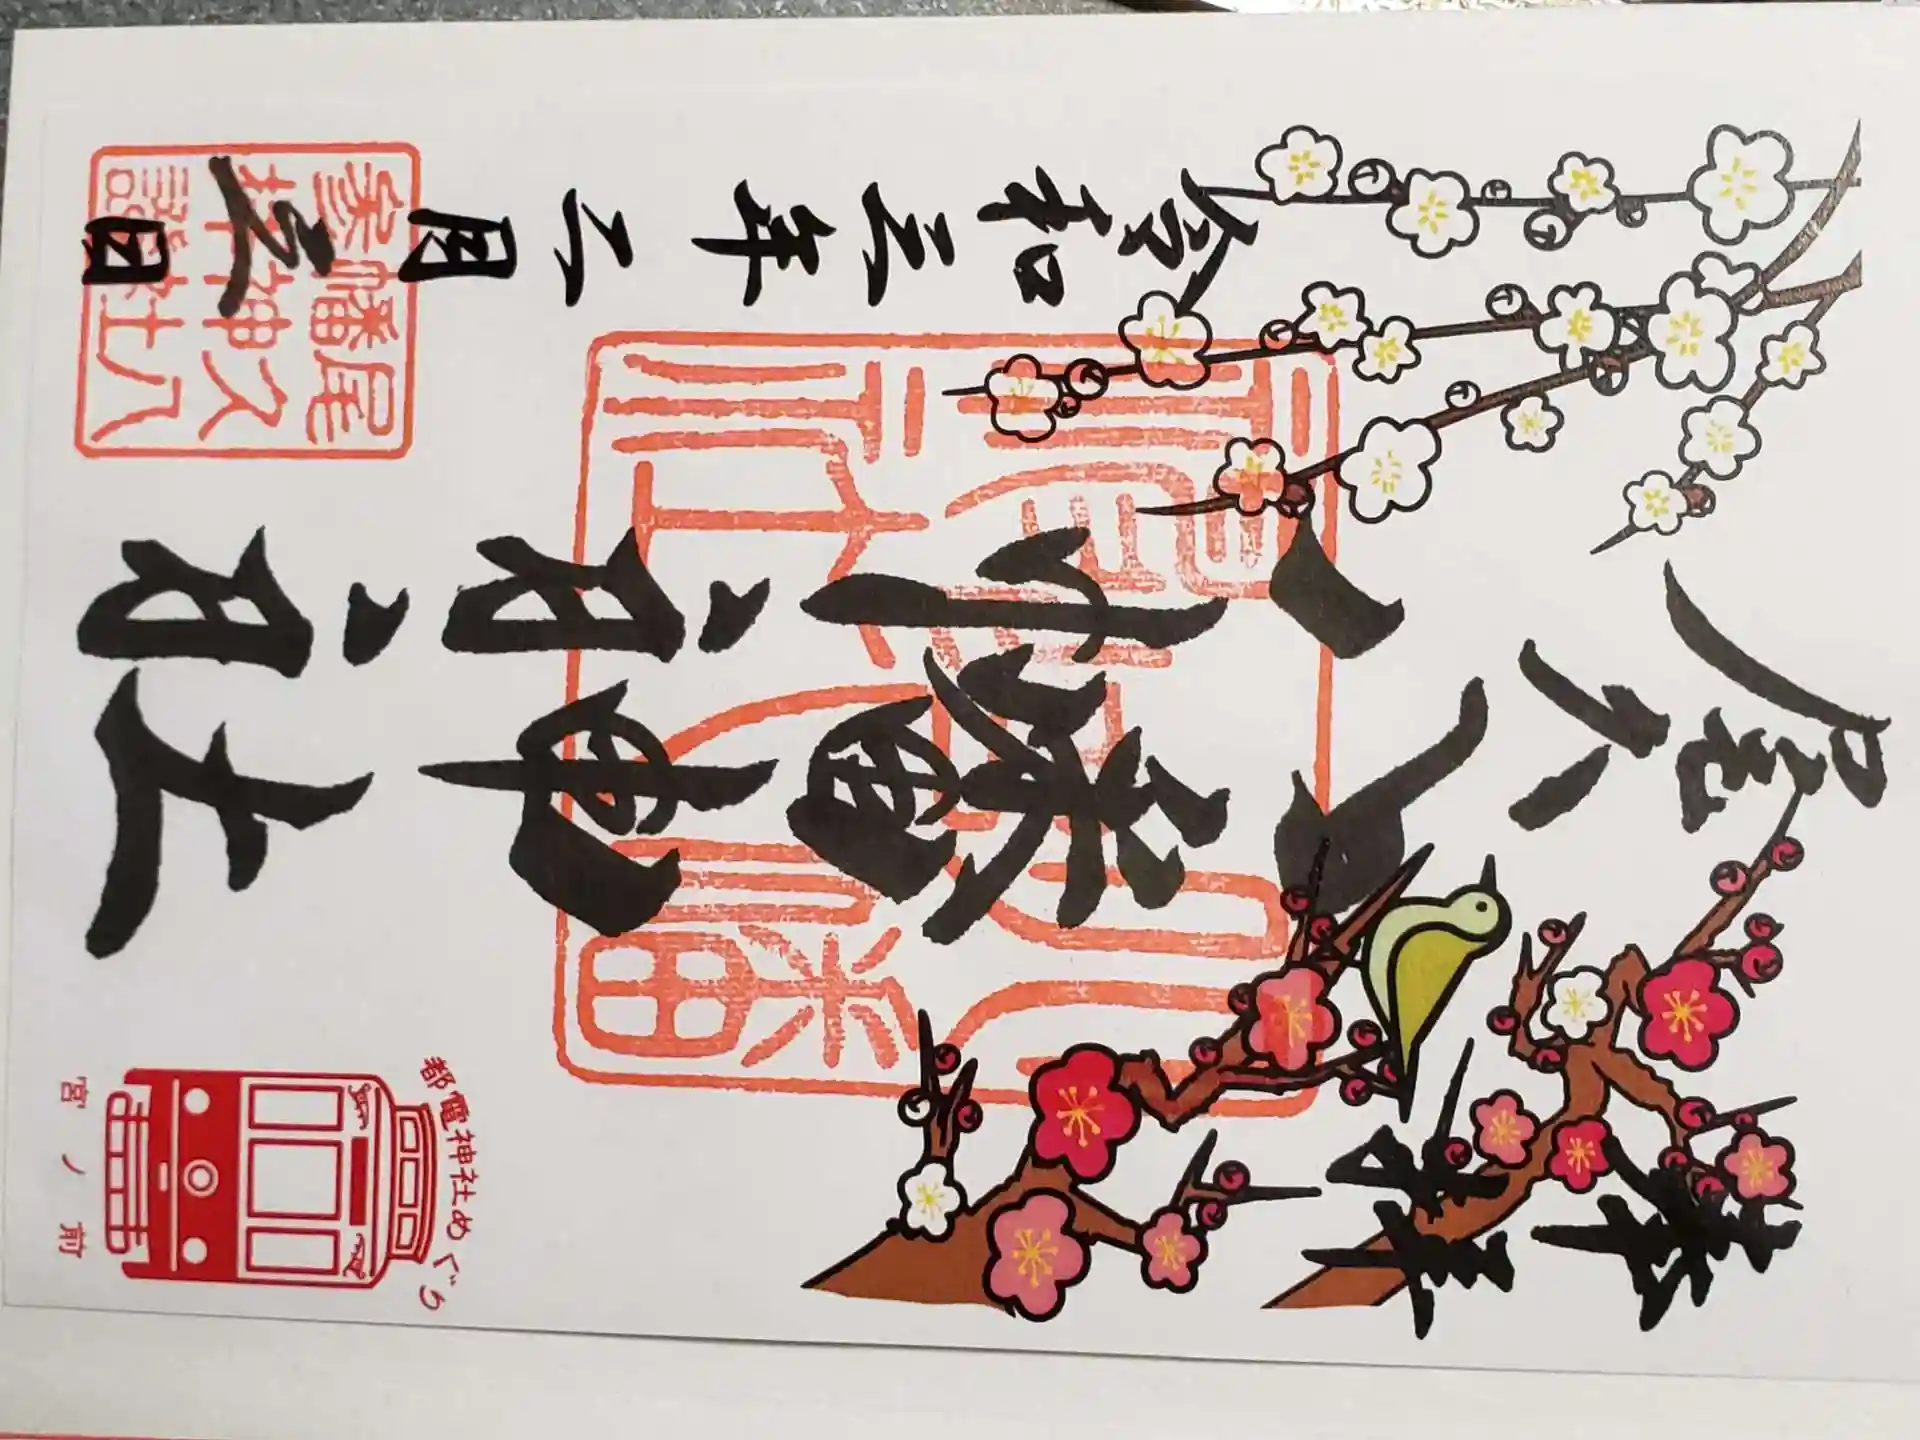 奉拝
尾久八幡神社
令和三年二月
日
尾久八
幡神社
參拝證
都電神社めぐり
宮ノ前